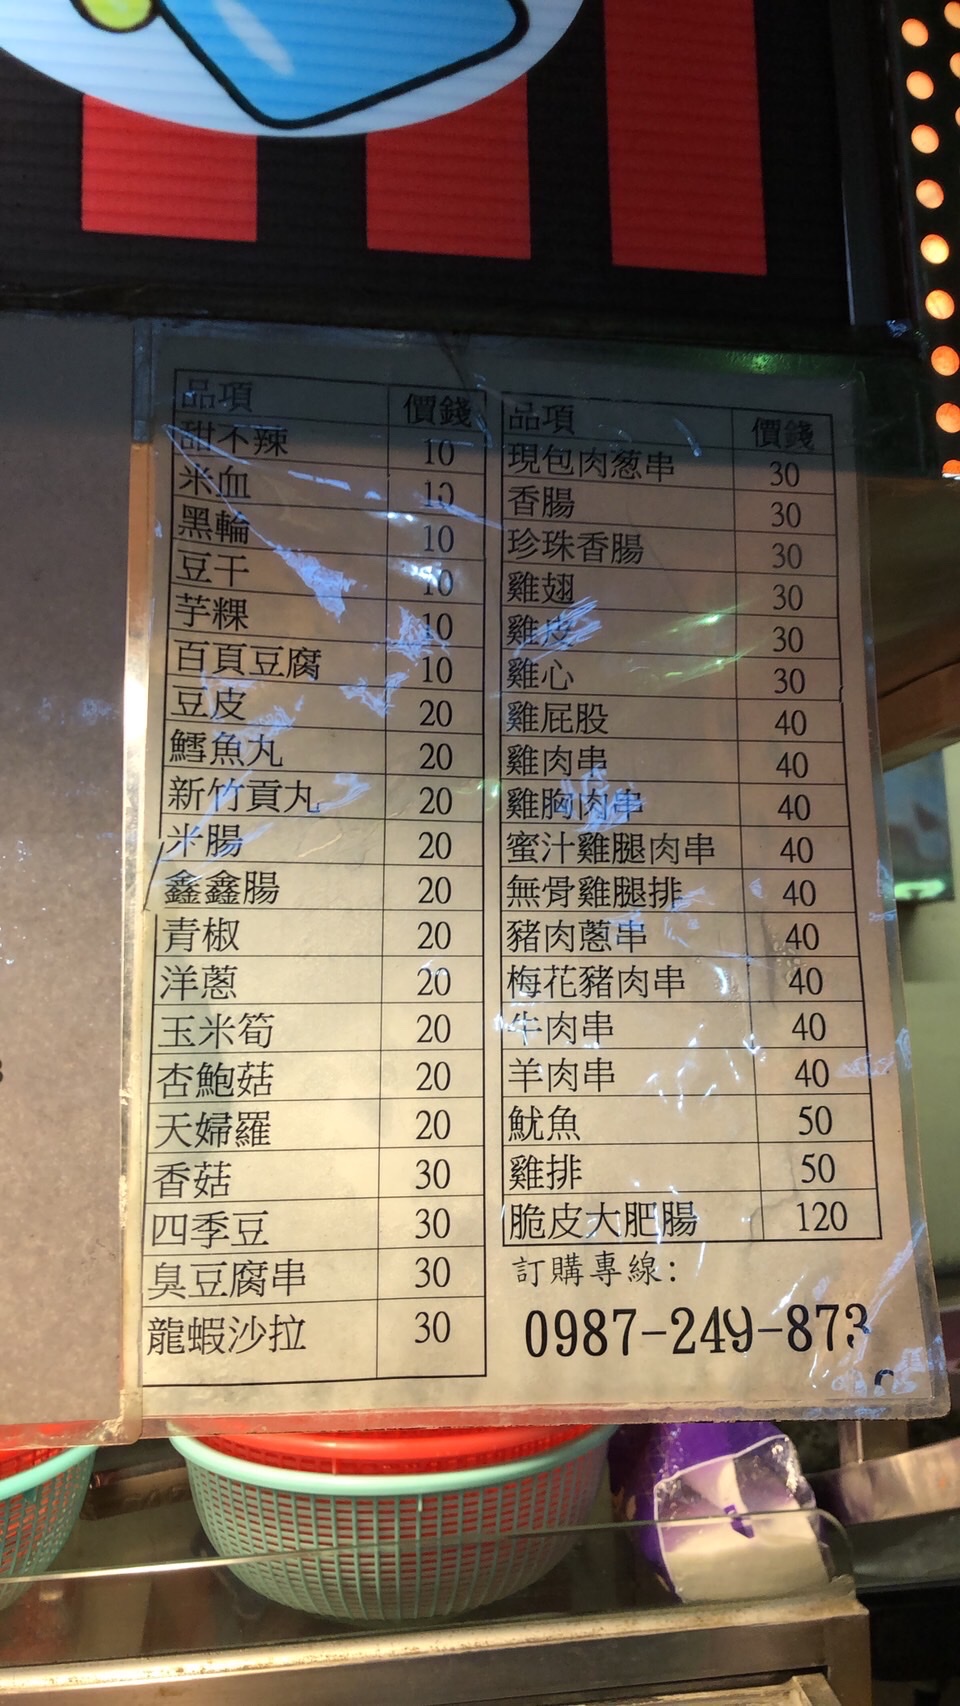 品項 價錢
甜不辣 10
米血 10
黑輪 10
豆干 10
芋粿 10
百頁豆腐 10
豆皮 20
鱈魚丸 20
新竹貢丸 20
米腸 20
鑫鑫腸 20
青椒 20
洋蔥 20
玉米筍 20
杏鮑菇 20
天婦羅 20
香菇 30
四季豆 30
臭豆腐串 30
龍蝦沙拉 30
品項 價錢
現包肉葱串 30
香腸 30
珍珠香腸 30
雞翅 30
雞皮 30
雞心 30
雞屁股 40
雞肉串 40
雞胸肉串 40
蜜汁雞腿肉串 40
無骨雞腿排 40
豬肉蔥串 40
梅花豬肉串 40
牛肉串 40
羊肉串 40
魷魚 50
雞排 50
脆皮大肥腸 120
訂購專線:
0987-249-873